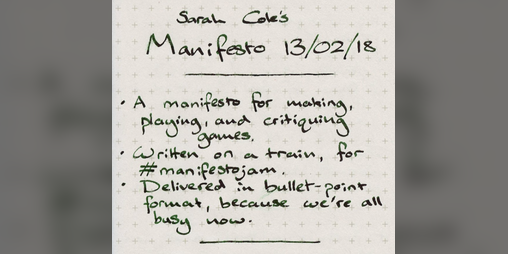 Sarah Cole's
Manifesto 13/02/18
• A manifesto for making,
playing, and critiquing
games.
• Written on a train, for
#manifestojam.
• Delivered in bullet-point
format, because we're all
busy now.